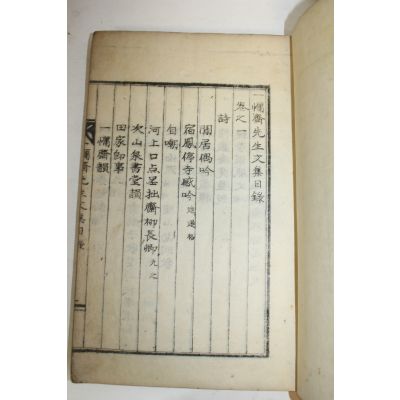 一慵齋先生文集目錄
卷之一
詩
閒居偶吟
宿鳳停寺感吟
自嘲
河上口点呈拙齋柳長卿元之
次山泉書堂韻
田家卽事
一慵齋韻
一慵齋先生文集目錄